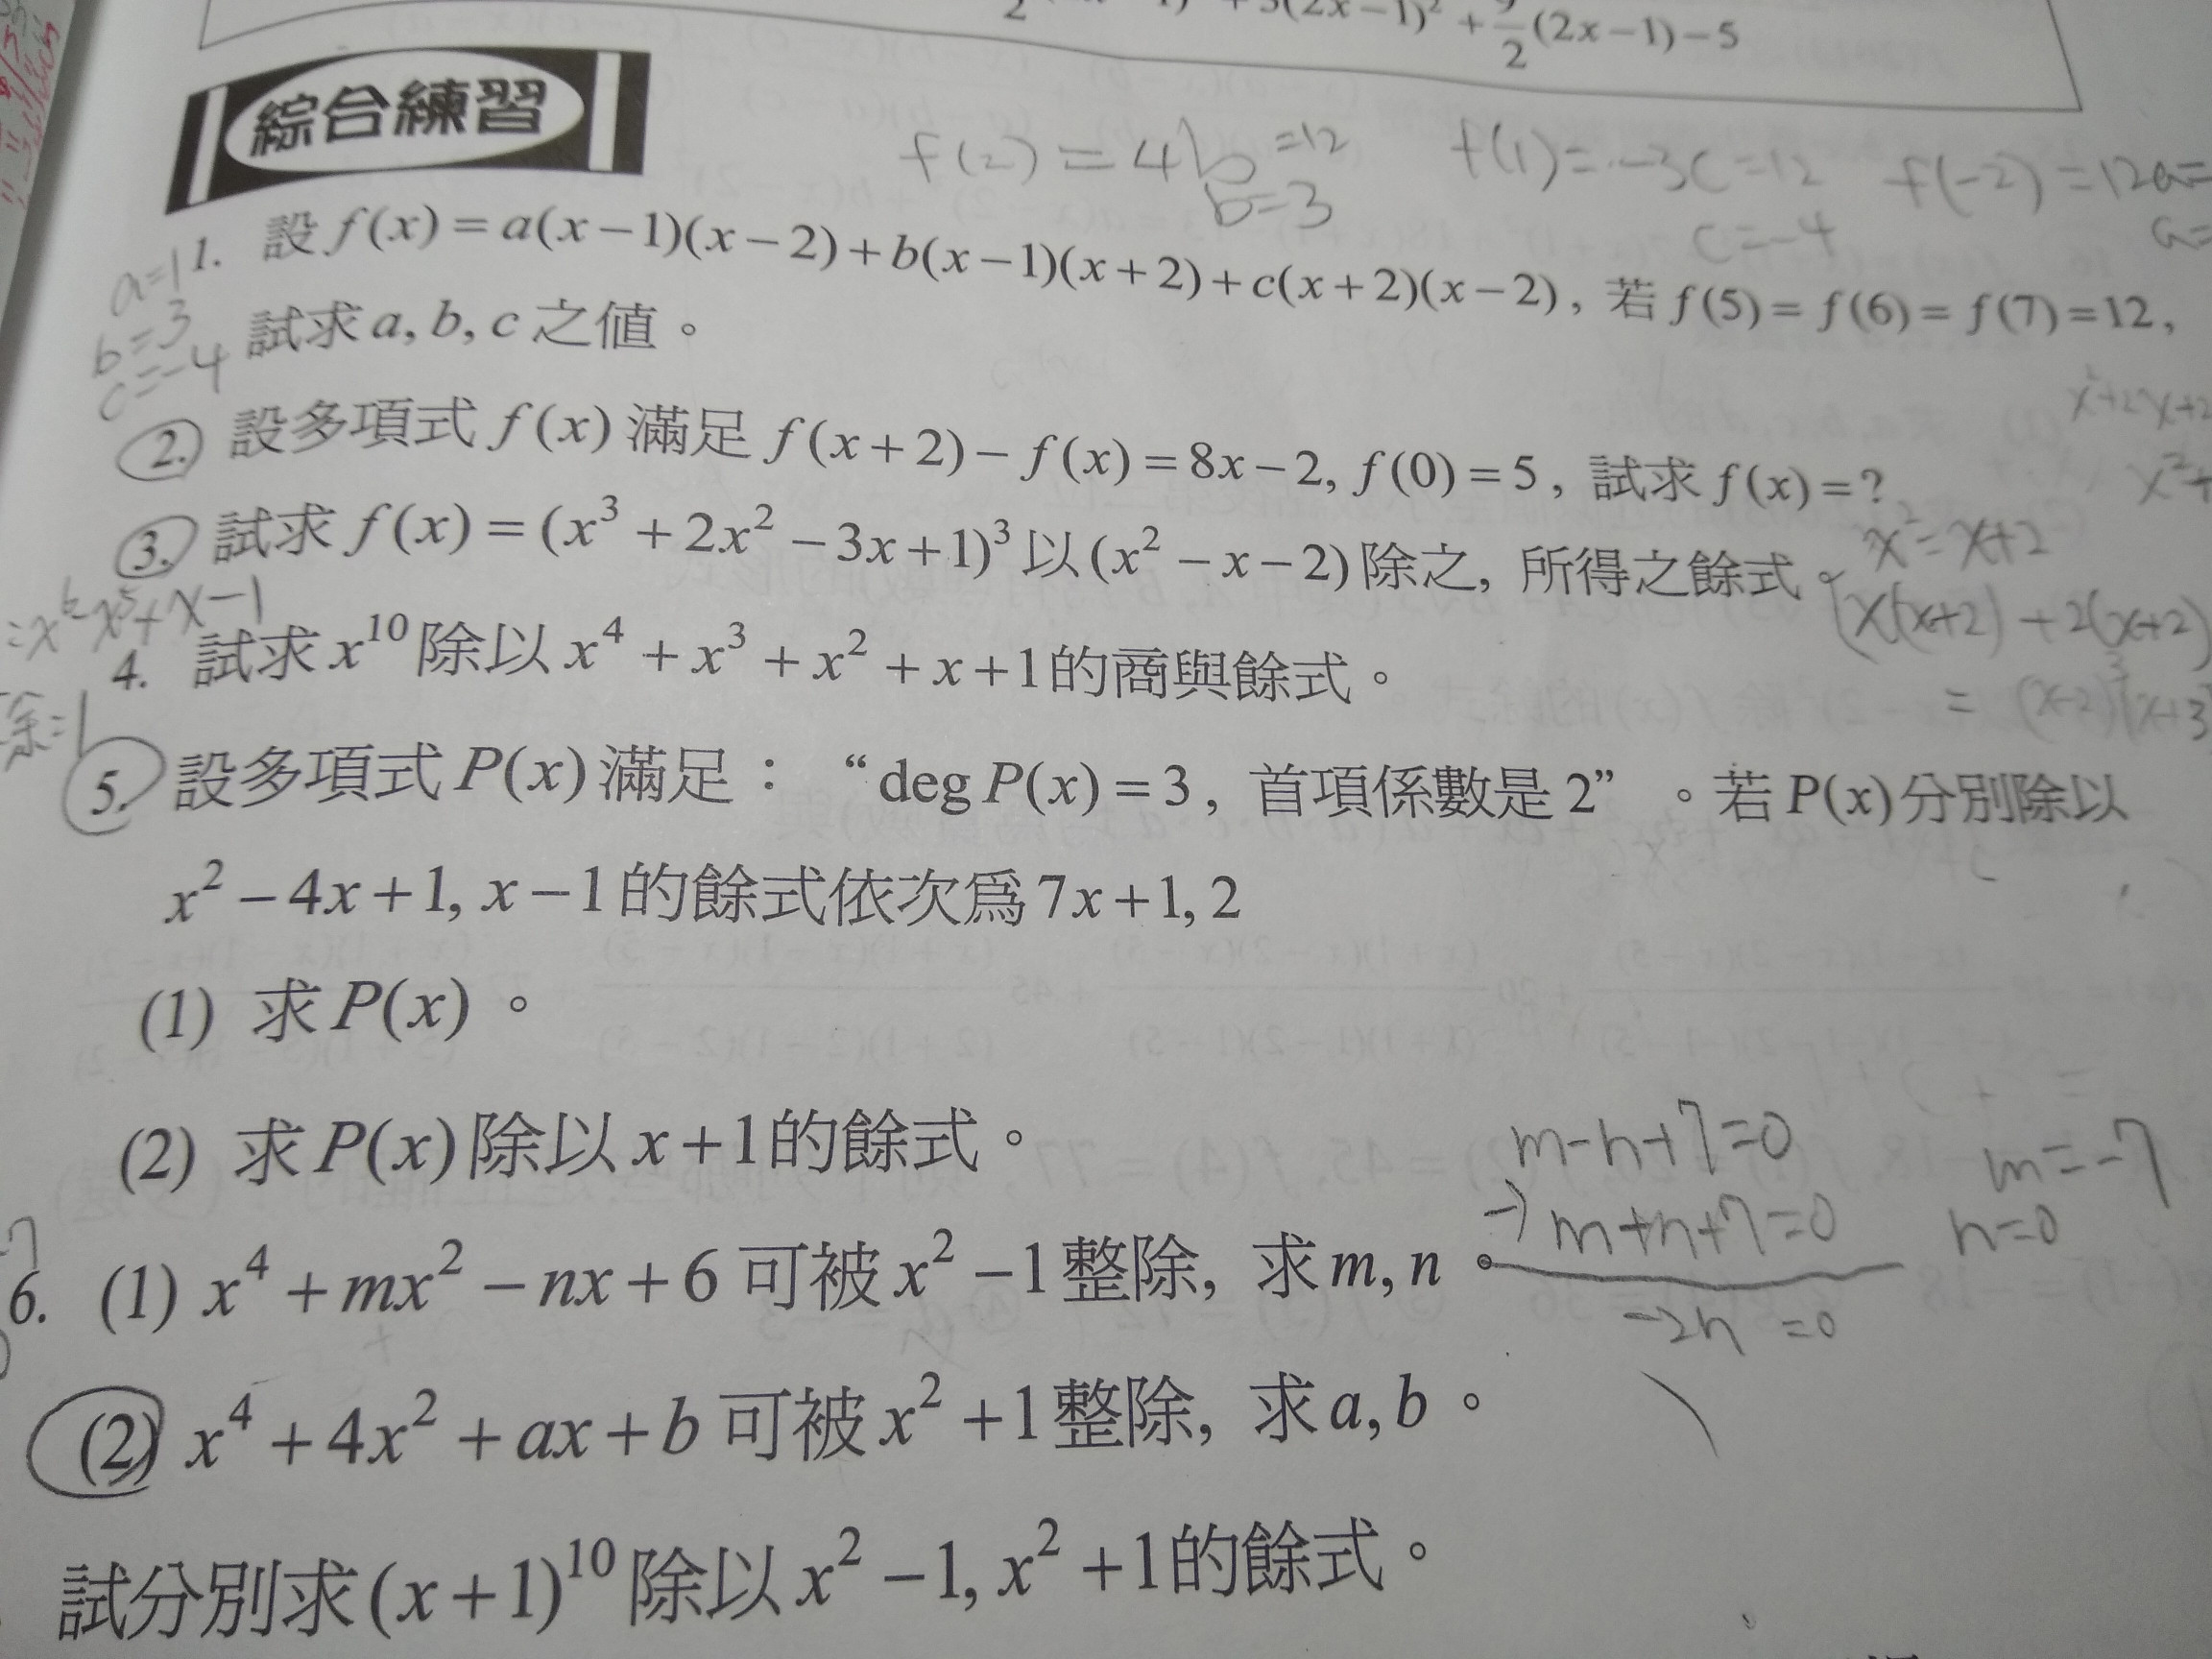 +3(2x−1)²+9/2(2x−1)−5
綜合練習
f(2)=4b=12
b=3
f(1)=-3c=12
c=-4
f(-2)=12a=
a=
a=1
b=3
c=-4
1. 設 f(x)=a(x−1)(x−2)+b(x−1)(x+2)+c(x+2)(x−2), 若 f(5)=f(6)=f(7)=12,
試求 a, b, c 之值。
2. 設多項式 f(x) 滿足 f(x+2)−f(x)=8x−2, f(0)=5, 試求 f(x)=?
x²+2x+2
x²+
3. 試求 f(x)=(x³+2x²−3x+1)³ 以 (x²−x−2) 除之, 所得之餘式。
x²=x+2
[x(x+2)+2(x+2)
=x⁶-x⁵+x-1
4. 試求 x¹⁰ 除以 x⁴+x³+x²+x+1 的商與餘式。
餘=1
5. 設多項式 P(x) 滿足：“deg P(x)=3, 首項係數是 2”。若 P(x) 分別除以
x²−4x+1, x−1 的餘式依次為 7x+1, 2
(1) 求 P(x)。
(2) 求 P(x) 除以 x+1 的餘式。
m-n+7=0
-) m+n+7=0
-2n=0
m=-7
n=0
-7
6. (1) x⁴+mx²−nx+6 可被 x²−1 整除, 求 m, n。
(2) x⁴+4x²+ax+b 可被 x²+1 整除, 求 a, b。
試分別求 (x+1)¹⁰ 除以 x²−1, x²+1 的餘式。